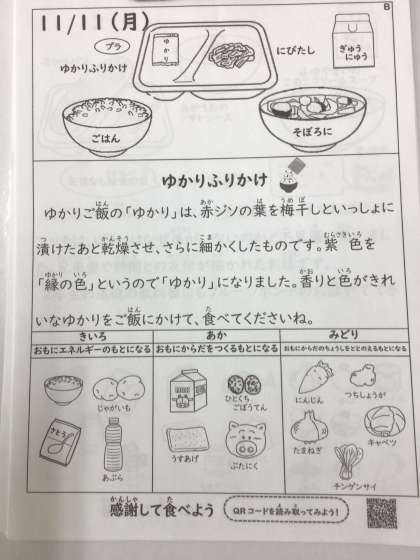 B
11/11(月)
プラ
ゆかりふりかけ
ゆかり
にびたし
ぎゅうにゅう
ごはん
そぼろに
ゆかりふりかけ
ゆかりご飯の「ゆかり」は、赤ジソの葉を梅干しといっしょに
漬けたあと乾燥させ、さらに細かくしたものです。紫色を
「縁の色」というので「ゆかり」になりました。香りと色がきれ
いなゆかりをご飯にかけて、食べてくださいね。
きいろ
おもにエネルギーのもとになる
じゃがいも
さとう
あぶら
あか
おもにからだをつくるもとになる
ひとくち
ごぼうてん
うすあげ
ぶたにく
みどり
おもにからだのちょうしをととのえるもとになる
にんじん
つちしょうが
たまねぎ
キャベツ
チンゲンサイ
感謝して食べよう
QRコードを読み取ってみよう!